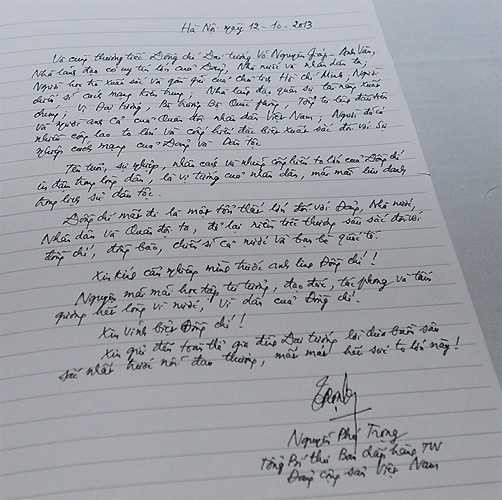 Hà Nội ngày 12-10-2013
Vô cùng thương tiếc Đồng chí Đại tướng Võ Nguyên Giáp - Anh Văn,
Nhà lãnh đạo có uy tín lớn của Đảng, Nhà nước và nhân dân ta;
Người học trò xuất sắc và gần gũi của Chủ tịch Hồ Chí Minh; Người
chiến sĩ cách mạng kiên trung; Nhà lãnh đạo quân sự tài năng xuất
chúng; Vị Đại tướng, Bộ trưởng Bộ Quốc phòng, Tổng tư lệnh đầu tiên
và người anh cả của Quân đội nhân dân Việt Nam; Người đã có
nhiều công lao to lớn và cống hiến đặc biệt xuất sắc đối với sự
nghiệp cách mạng của Đảng và dân tộc.
Tên tuổi, sự nghiệp, nhân cách và những cống hiến to lớn của Đồng chí
in đậm trong lòng dân, là vị tướng của nhân dân, mãi mãi lưu danh
trong lịch sử dân tộc.
Đồng chí mất đi là một tổn thất lớn đối với Đảng, Nhà nước,
Nhân dân và Quân đội ta, để lại niềm tiếc thương sâu sắc đối với
đồng chí, đồng bào, chiến sĩ cả nước và bạn bè quốc tế.
Xin kính cẩn nghiêng mình trước anh linh Đồng chí!
Nguyện mãi mãi học tập tư tưởng, đạo đức, tác phong và tấm
gương hết lòng vì nước, vì dân của Đồng chí.
Xin vĩnh biệt Đồng chí!
Xin gửi đến toàn thể gia đình Đại tướng lời chia buồn sâu
sắc nhất trước nỗi đau thương, mất mát hết sức to lớn này!
Trọng
Nguyễn Phú Trọng
Tổng Bí thư Ban Chấp hành TW
Đảng cộng sản Việt Nam